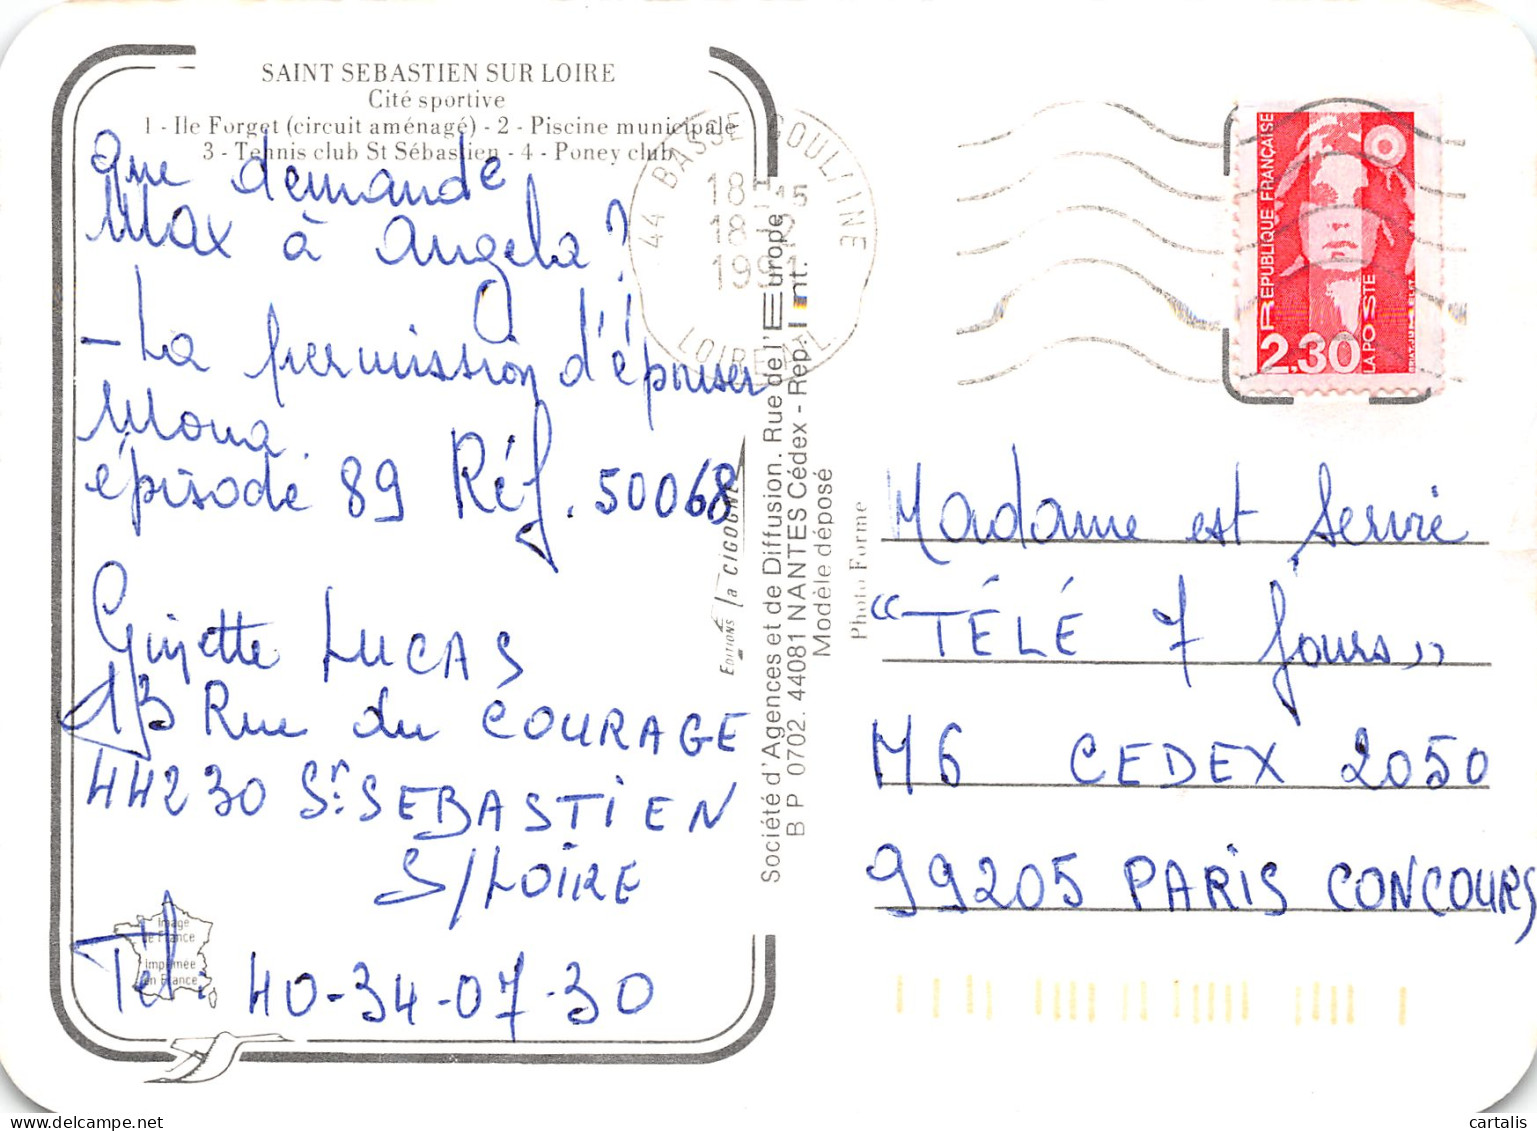 SAINT SEBASTIEN SUR LOIRE
Cité sportive
1 - Ile Forget (circuit aménagé) - 2 - Piscine municipale
3 - Tennis club St Sébastien - 4 - Poney club
que demande
Max à Angela ?
- La permission d'épouser
Mona.
épisode 89 Réf. 50068
Ginette LUCAS
13 Rue du COURAGE
44230 St SEBASTIEN
S/LOIRE
Tél. 40-34-07-30
Image
de France
Imprimée
en France
EDITIONS la CIGOGNE
Société d'Agences et de Diffusion. Rue de l'Europe
B P 0702. 44081 NANTES Cédex - Rep. Int.
Modèle déposé
Photo Forme
44 BASSE GOULAINE
18 H 15
18-12
1991
LOIRE ATL.
REPUBLIQUE FRANÇAISE
2,30
LA POSTE
Madame est Servie
"TÉLÉ 7 Jours"
M6 CEDEX 2050
99205 PARIS CONCOURS
cartalis